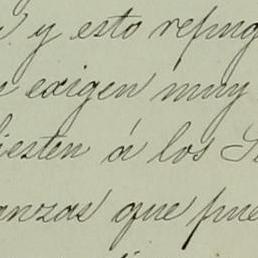 y esto repug
exigen muy
iesten á los S
anzas que pue